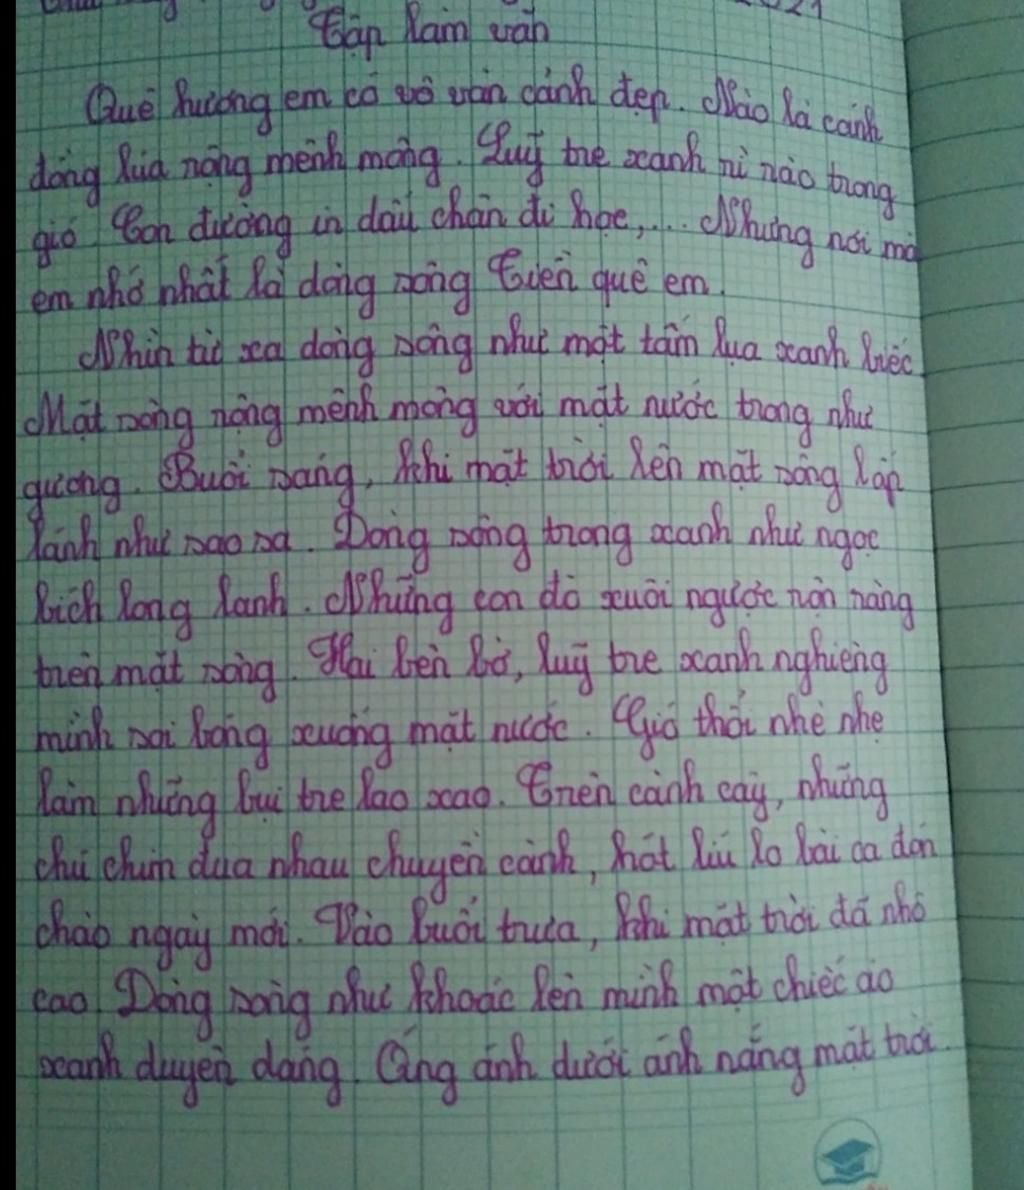 2021
Tập làm văn
Quê hương em có vô vàn cảnh đẹp. Nào là cánh
đồng lúa rộng mênh mông. Luỹ tre xanh rì rào trong
gió. Con đường in dấu chân đi học,... Nhưng nơi mà
em nhớ nhất là dòng sông Tiên quê em.
Nhìn từ xa dòng sông như một tấm lụa xanh biếc.
Mặt sông rộng mênh mông với mặt nước trong như
gương. Buổi sáng, khi mặt trời lên mặt sông lấp
lánh như sao sa. Dòng sông trong xanh như ngọc
bích long lanh. Những con đò xuôi ngược rộn ràng
trên mặt sông. Hai bên bờ, luỹ tre xanh nghiêng
mình soi bóng xuống mặt nước. Gió thổi nhè nhẹ
làm những bụi tre lao xao. Trên cành cây, những
chú chim đua nhau chuyền cành, hót líu lo bài ca đón
chào ngày mới. Vào buổi trưa, khi mặt trời đã nhô
cao. Dòng sông như khoác lên mình một chiếc áo
xanh duyên dáng. Óng ánh dưới ánh nắng mặt trời.